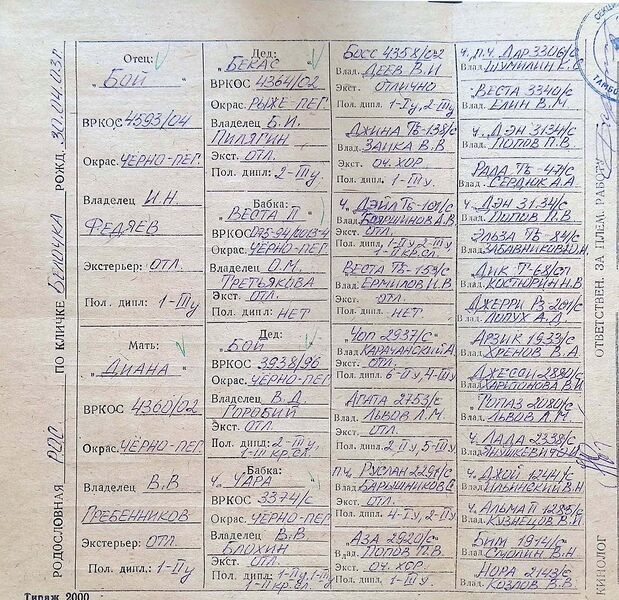 РОДОСЛОВНАЯ РОС ПО КЛИЧКЕ БЕЛОЧКА РОЖД. 30.04.03г
Отец:
"БОЙ"
ВРКОС 4593/04
Окрас. ЧЕРНО-ПЕГ.
Владелец И.Н.
ФЕДЯЕВ
Экстерьер: ОТЛ.
Пол. дипл: 1-IIIу
Мать:
"ДИАНА"
ВРКОС 4360/02
Окрас: ЧЕРНО-ПЕГ.
Владелец В.В
ГРЕБЕННИКОВ
Экстерьер: ОТЛ.
Пол. дипл: 1-IIу
Дед:
"БЕКАС"
ВРКОС 4364/02
Окрас. РЫЖЕ-ПЕГ.
Владелец Б.И.
ПИЛЯГИН
Экст. ОТЛ.
Пол. дипл: 2-IIIу.
Бабка:
"ВЕСТА II"
ВРКОС
Окрас. ЧЕРНО-ПЕГ.
Владелец О.М.
ТРЕТЬЯКОВА
Экст. ОТЛ.
Пол. дипл: НЕТ
Дед:
"БОЙ"
ВРКОС 3938/96
Окрас. ЧЕРНО-ПЕГ
Владелец В.Д.
ГОРОБИЙ
Экст. ОТЛ.
Пол. дипл: 2-IIIу,
1-III кр.сл.
Бабка:
Ч. ЧАРА
ВРКОС 3374/с
Окрас. ЧЕРНО-ПЕГ
Владелец В.В.
БЛОХИН
Экст. ОТЛ.
Пол. дипл: 1-IIу,
1-II кр.сл.
БОСС 4358/02
Влад. ДЕЕВ В.И
Экст. ОТЛИЧНО
Пол. дипл. 1-Iу, 2-IIIу
ДЖИНА ТБ-138/с
Влад. ЗАИКА В.В
Экст. ОЧ. ХОР.
Пол. дипл. 1-IIIу.
Ч. ДЭЙЛ ТБ-101/с
Влад. БОЯРШИНОВ Д.В.
Экст. ОТЛ.
Пол. дипл. 1-IIу, 2-IIIу
1-II кр.сл.
ВЕСТА ТБ-153/с
Влад. ЕРМИЛОВ И.В
Экст. ОТЛ.
Пол. дипл. НЕТ
"ЧОП 2937/с
Влад. КАРАЧАНСКИЙ А
Экст. ОТЛ.
Пол. дипл. 6-IIу, 4-IIIу
АГАТА 2753/с
Влад. ЛЬВОВ Л.М.
Экст. ОТЛ.
Пол. дипл. 2 IIу, 5-IIIу.
П.Ч. РУСЛАН 2297/с
Влад. БАРЫШНИКОВ С.
Экст. ОТЛ.
Пол. дипл. 4-Iу, 2-IIу
"АЗА 2920/с
Влад. ПОПОВ П.В.
Экст. ОЧ. ХОР.
Пол. дипл. 1-IIIу
Ч.П.Ч. ДАР 3306/с
Влад. ШУМИЛИН К.С.
ВЕСТА 3340/с
Влад. ЕЛИН В.М.
Ч. ДЭН 3134/с
Влад. ПОПОВ П.В.
РАДА ТБ-47/с
Влад. СЕРДЮК А.А
Ч. ДЭН 3134/с
Влад. ПОПОВ П.В
ЭЛЬЗА ТБ-83/с
Влад. ЗАБАВНИКОВА О.Н.
ДИК Т-68/сп
Влад. КОСТЮРИН Н.В
ДЖЕРРИ РЗ-201/с
Влад. ЛИПУХ А.Д.
АРЗИК 1933/с
Влад. ХРЕНОВ В.А
ДЖЕССИ 2890/с
Влад. ХАРИТОНОВА В.И
"ТОПАЗ 2080/с
Влад. ЛЬВОВ Л.М.
Ч. ЛАДА 2338/с
Влад. ЯНУШКЕВИЧ
Ч. ДЖОЙ 1244/с
Влад. ИЛЬИНСКИЙ В.Н
Ч. АЛЬМА II 1285/с
Влад. КУЗНЕЦОВ В.И
БИМ 1974/с
Влад. СМОЛИН В.Н.
НОРА 2143/с
Влад. КОЗЛОВ В.В.
КИНОЛОГ ОТВЕТСТВЕН. ЗА ПЛЕМ. РАБОТУ
Тираж 2000